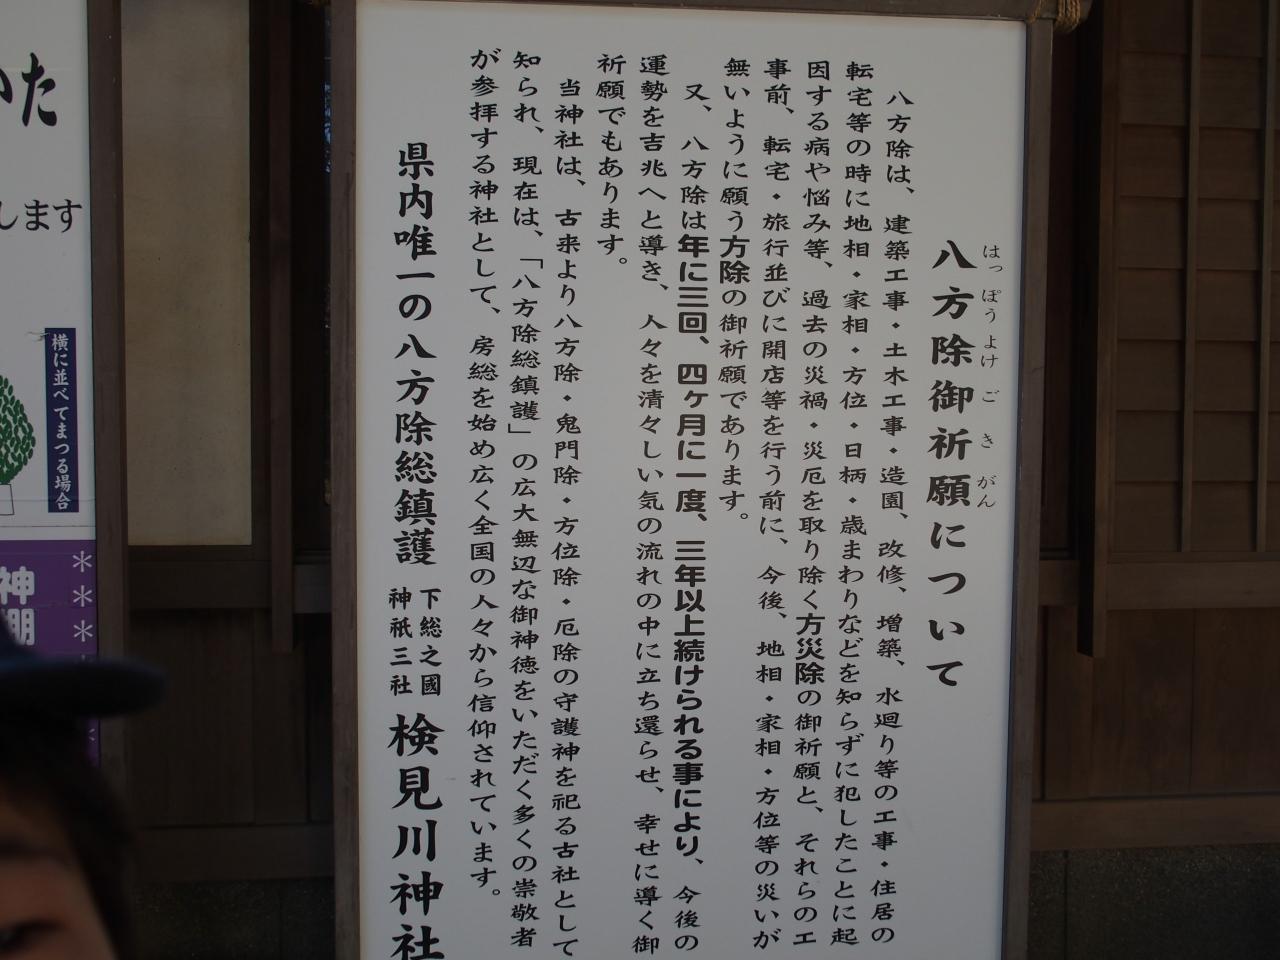 八方除御祈願について
はっぽうよけごきがん
八方除は、建築工事・土木工事・造園、改修、増築、水廻り等の工事・住居の
転宅等の時に地相・家相・方位・日柄・歳まわりなどを知らずに犯したことに起
因する病や悩み等、過去の災禍・災厄を取り除く方災除の御祈願と、それらの工
事前、転宅・旅行並びに開店等を行う前に、今後、地相・家相・方位等の災いが
無いように願う方除の御祈願であります。
又、八方除は年に三回、四ヶ月に一度、三年以上続けられる事により、今後の
運勢を吉兆へと導き、人々を清々しい気の流れの中に立ち還らせ、幸せに導く御
祈願でもあります。
当神社は、古来より八方除・鬼門除・方位除・厄除の守護神を祀る古社として
知られ、現在は、「八方除総鎮護」の広大無辺な御神徳をいただく多くの崇敬者
が参拝する神社として、房総を始め広く全国の人々から信仰されています。
県内唯一の八方除総鎮護
下総之國
神祇三社
検見川神社
いた
します
横に並べてまつる場合
神棚
＊＊＊